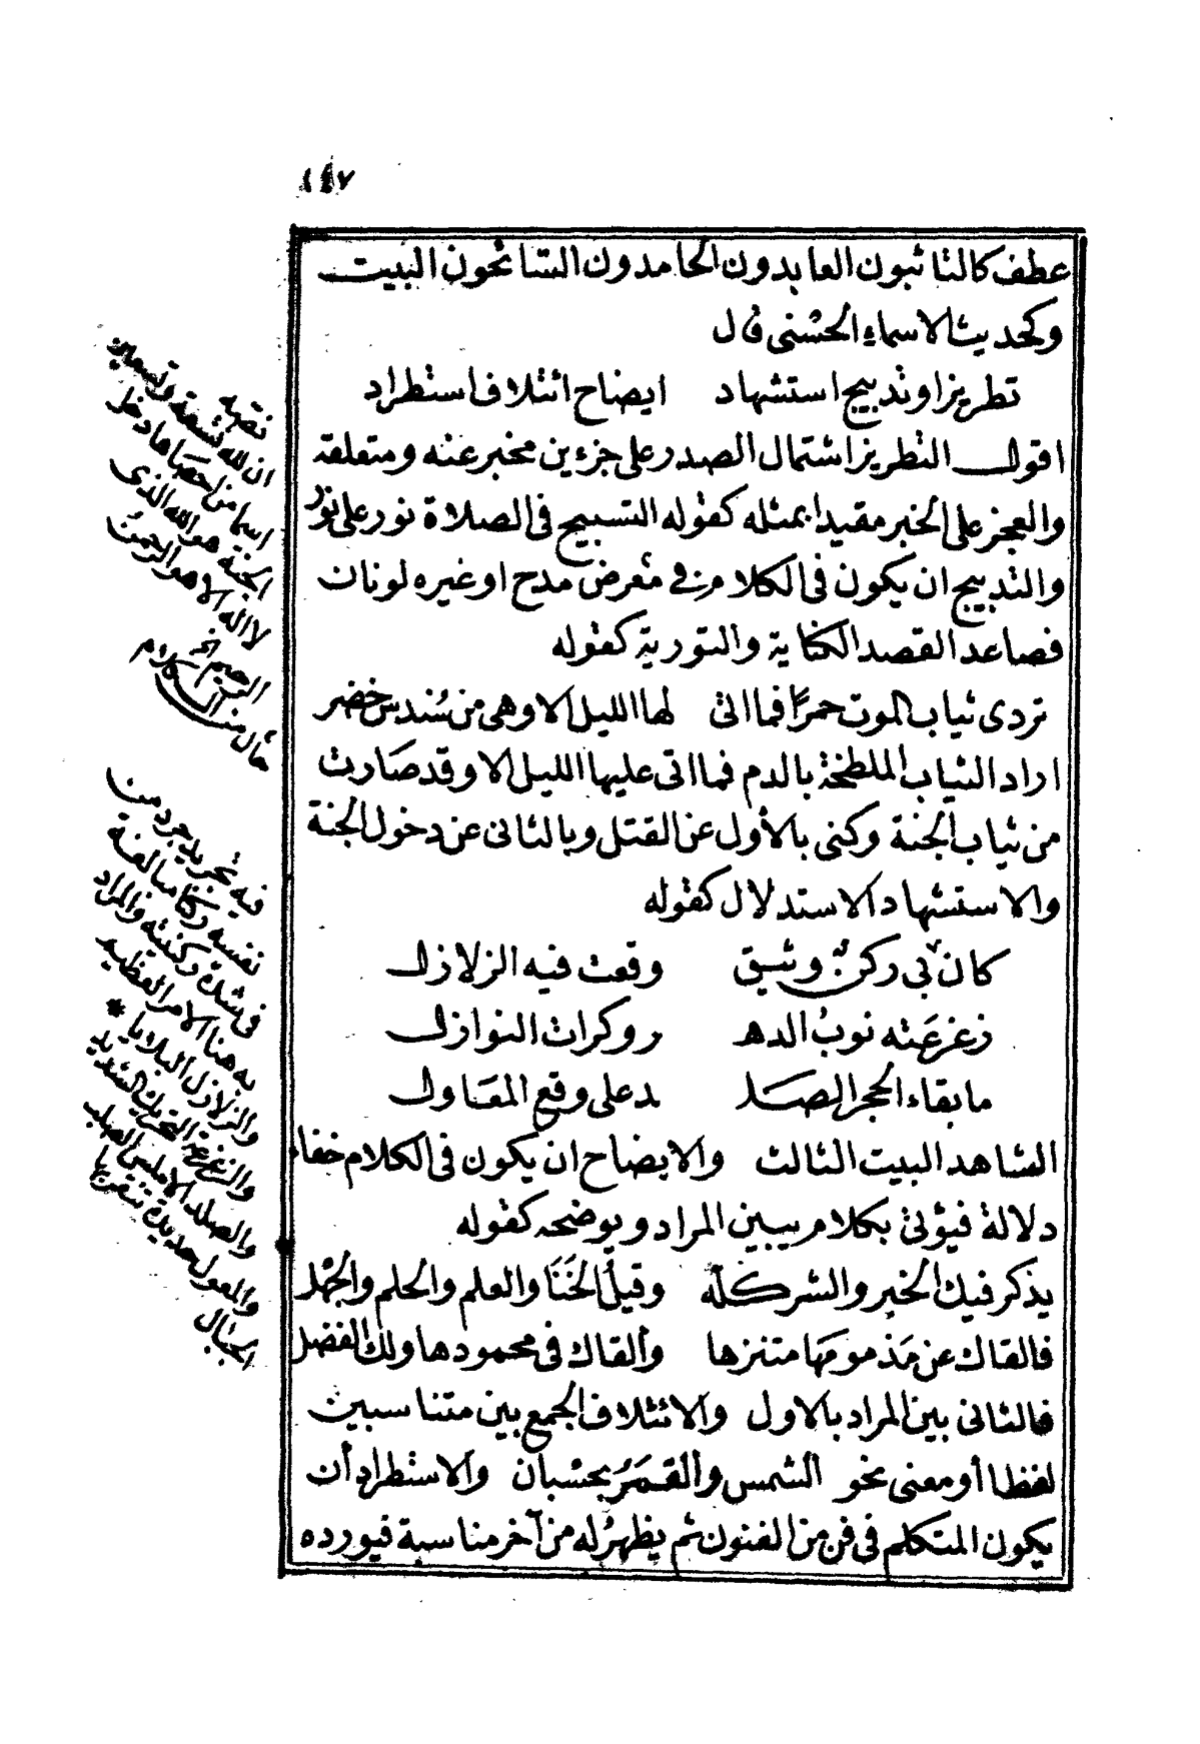 ١٤٧
عطف كالتائبون العابدون الحامدون السائحون البيت
وكحديث الاسماء الحسنى قال
تطريز او تدبيج استشهاد ايضاح ائتلاف استطراد
اقول التطريز اشتمال الصدر على جزءين مخبر عنه ومتعلقه
والعجز على الخبر مقيدا بمثله كقوله التسبيح فى الصلاة نور على نور
والتدبيج ان يكون فى الكلام من فى معرض مدح او غيره لونان
فصاعد القصد الكناية والتورية كقوله
تردى ثياب الموت حمرًا فما اتى لها الليل الا وهى من سُندس خضر
اراد الثياب الملطخة بالدم فما اتى عليها الليل الا وقد صارت
من ثياب الجنة وكنى بالأول عن القتل وبالثانى عن دخول الجنة
والاستشهاد الاستدلال كقوله
كان بى ركن وثيق وقعت فيه الزلازل
زعزعَته نوبُ الده ر وكرات النوازل
ما بقاء الحجر الصَلـ ـد على وقع المقاول
الشاهد البيت الثالث والايضاح ان يكون فى الكلام خفاء
دلالة فيؤتى بكلام يبين المراد ويوضحه كقوله
يذكر فيك الخير والشر كله وقيلُ الخَنَا والعلم والحلم والجهل
فالقاك عن مَذمومَها متنزها وألقاك فى محمودها ولك الفضل
فالثانى بين المراد بالاول والائتلاف الجمع بين متناسبين
لفظا أو معنى نحو الشمس والقمَرُ بحسْبان والاستطراد أن
يكون المتكلم فى فن من الفنون ثم يظهرُ له من آخر مناسبة فيورده
نصه
ان لله تسعة وتسعين
اسما من احصاها دخل
الجنة هو الله الذى
لا اله الا هو الرحمنُ
الرحيم الخ
فيه تجريد جرد من
نفسه ركنا مبالغة
فى شدة ركنيته والمراد
به هنا الامر العظيم
والزلازل البلايا *
والزعزعة التحريك الشديد
والصلد الاملس الصلب
والمعول حديدة تنقر بها
الجبال